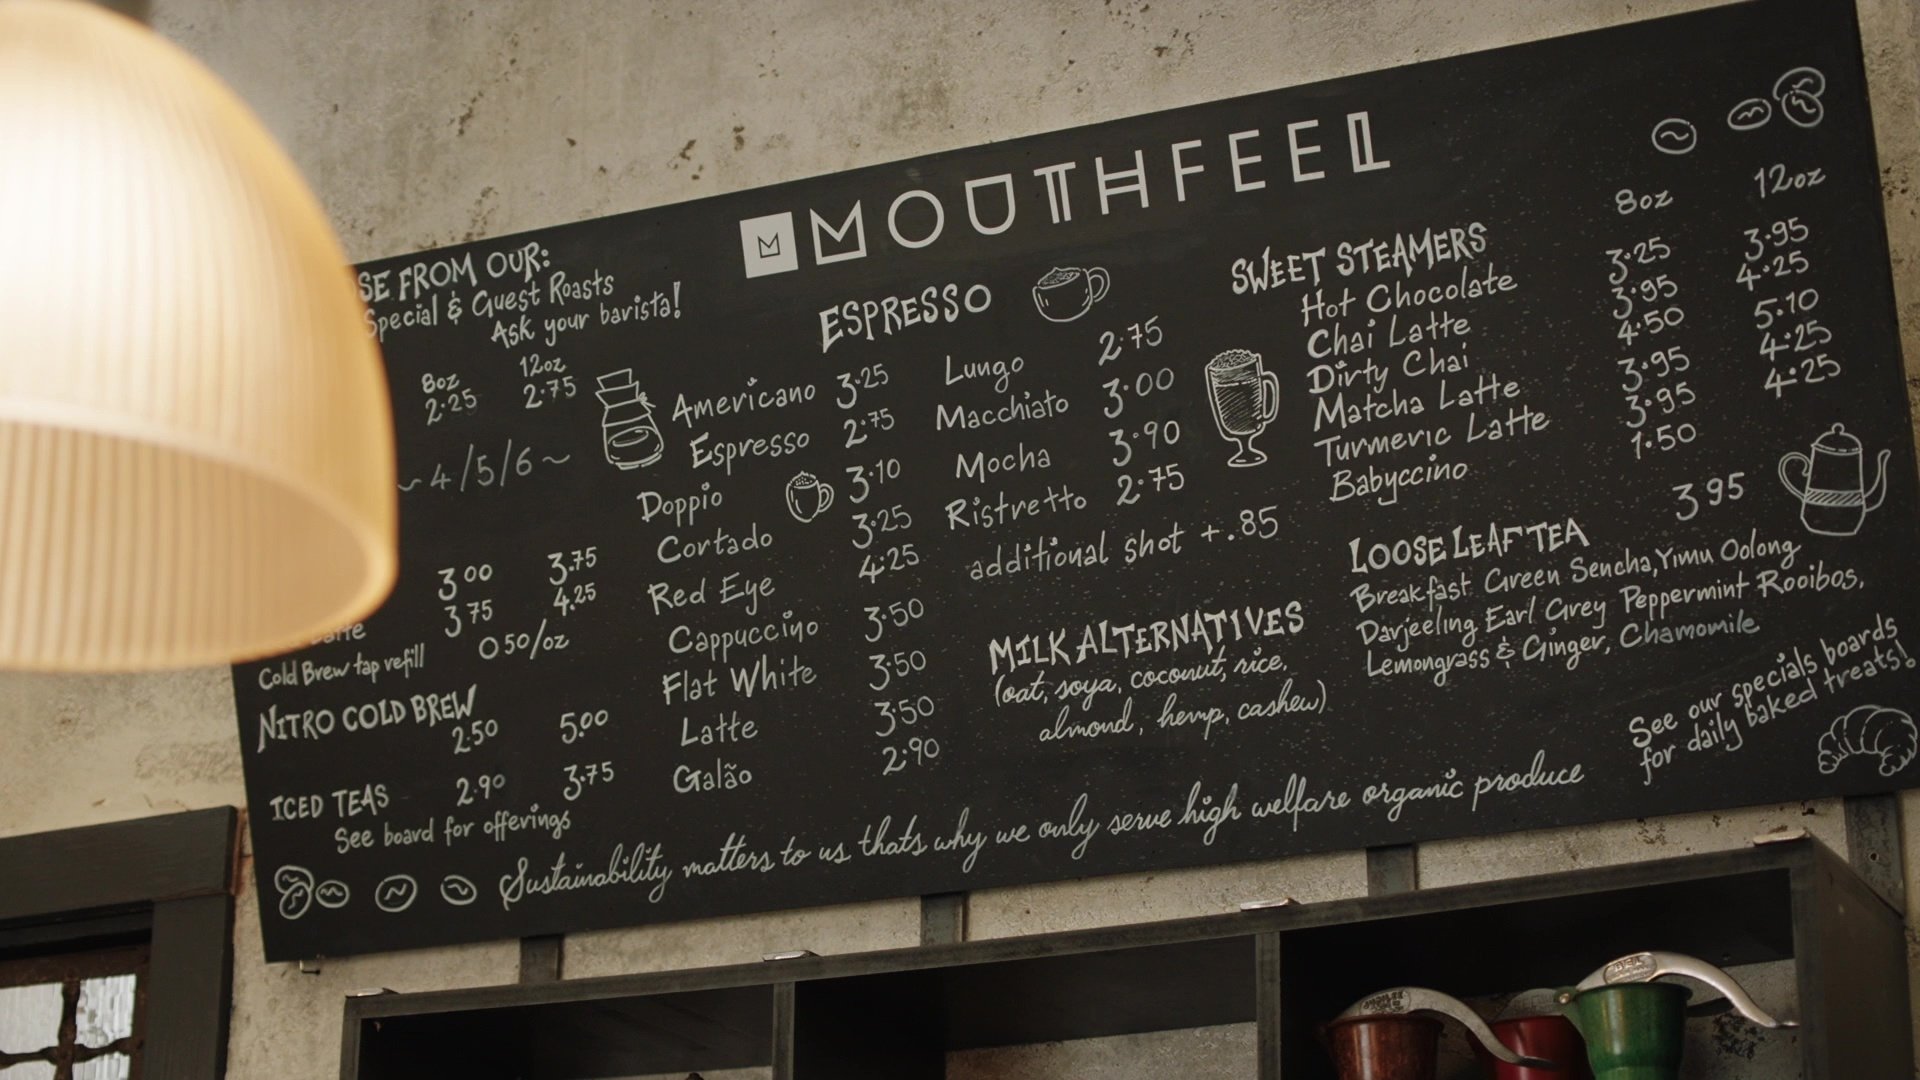 MOUTHFEEL
SE FROM OUR:
Special & Guest Roasts
Ask your barista!
8oz 12oz
2.25 2.75
~4/5/6~
3.00 3.75
3.75 4.25
Cold Brew tap refill 0.50/oz
NITRO COLD BREW
2.50 5.00
ICED TEAS 2.90 3.75
See board for offerings
ESPRESSO
Americano 3.25
Espresso 2.75
Doppio 3.10
Cortado 3.25
Red Eye 4.25
Cappuccino 3.50
Flat White 3.50
Latte 3.50
Galão 2.90
Lungo 2.75
Macchiato 3.00
Mocha 3.90
Ristretto 2.75
additional shot +.85
MILK ALTERNATIVES
(oat, soya, coconut, rice,
almond, hemp, cashew)
8oz 12oz
SWEET STEAMERS
Hot Chocolate 3.25 3.95
Chai Latte 3.95 4.25
Dirty Chai 4.50 5.10
Matcha Latte 3.95 4.25
Turmeric Latte 3.95 4.25
Babyccino 1.50
LOOSE LEAF TEA 3.95
Breakfast Green Sencha, Yimu Oolong
Darjeeling Earl Grey Peppermint Rooibos,
Lemongrass & Ginger, Chamomile
See our specials boards
for daily baked treats!
Sustainability matters to us thats why we only serve high welfare organic produce